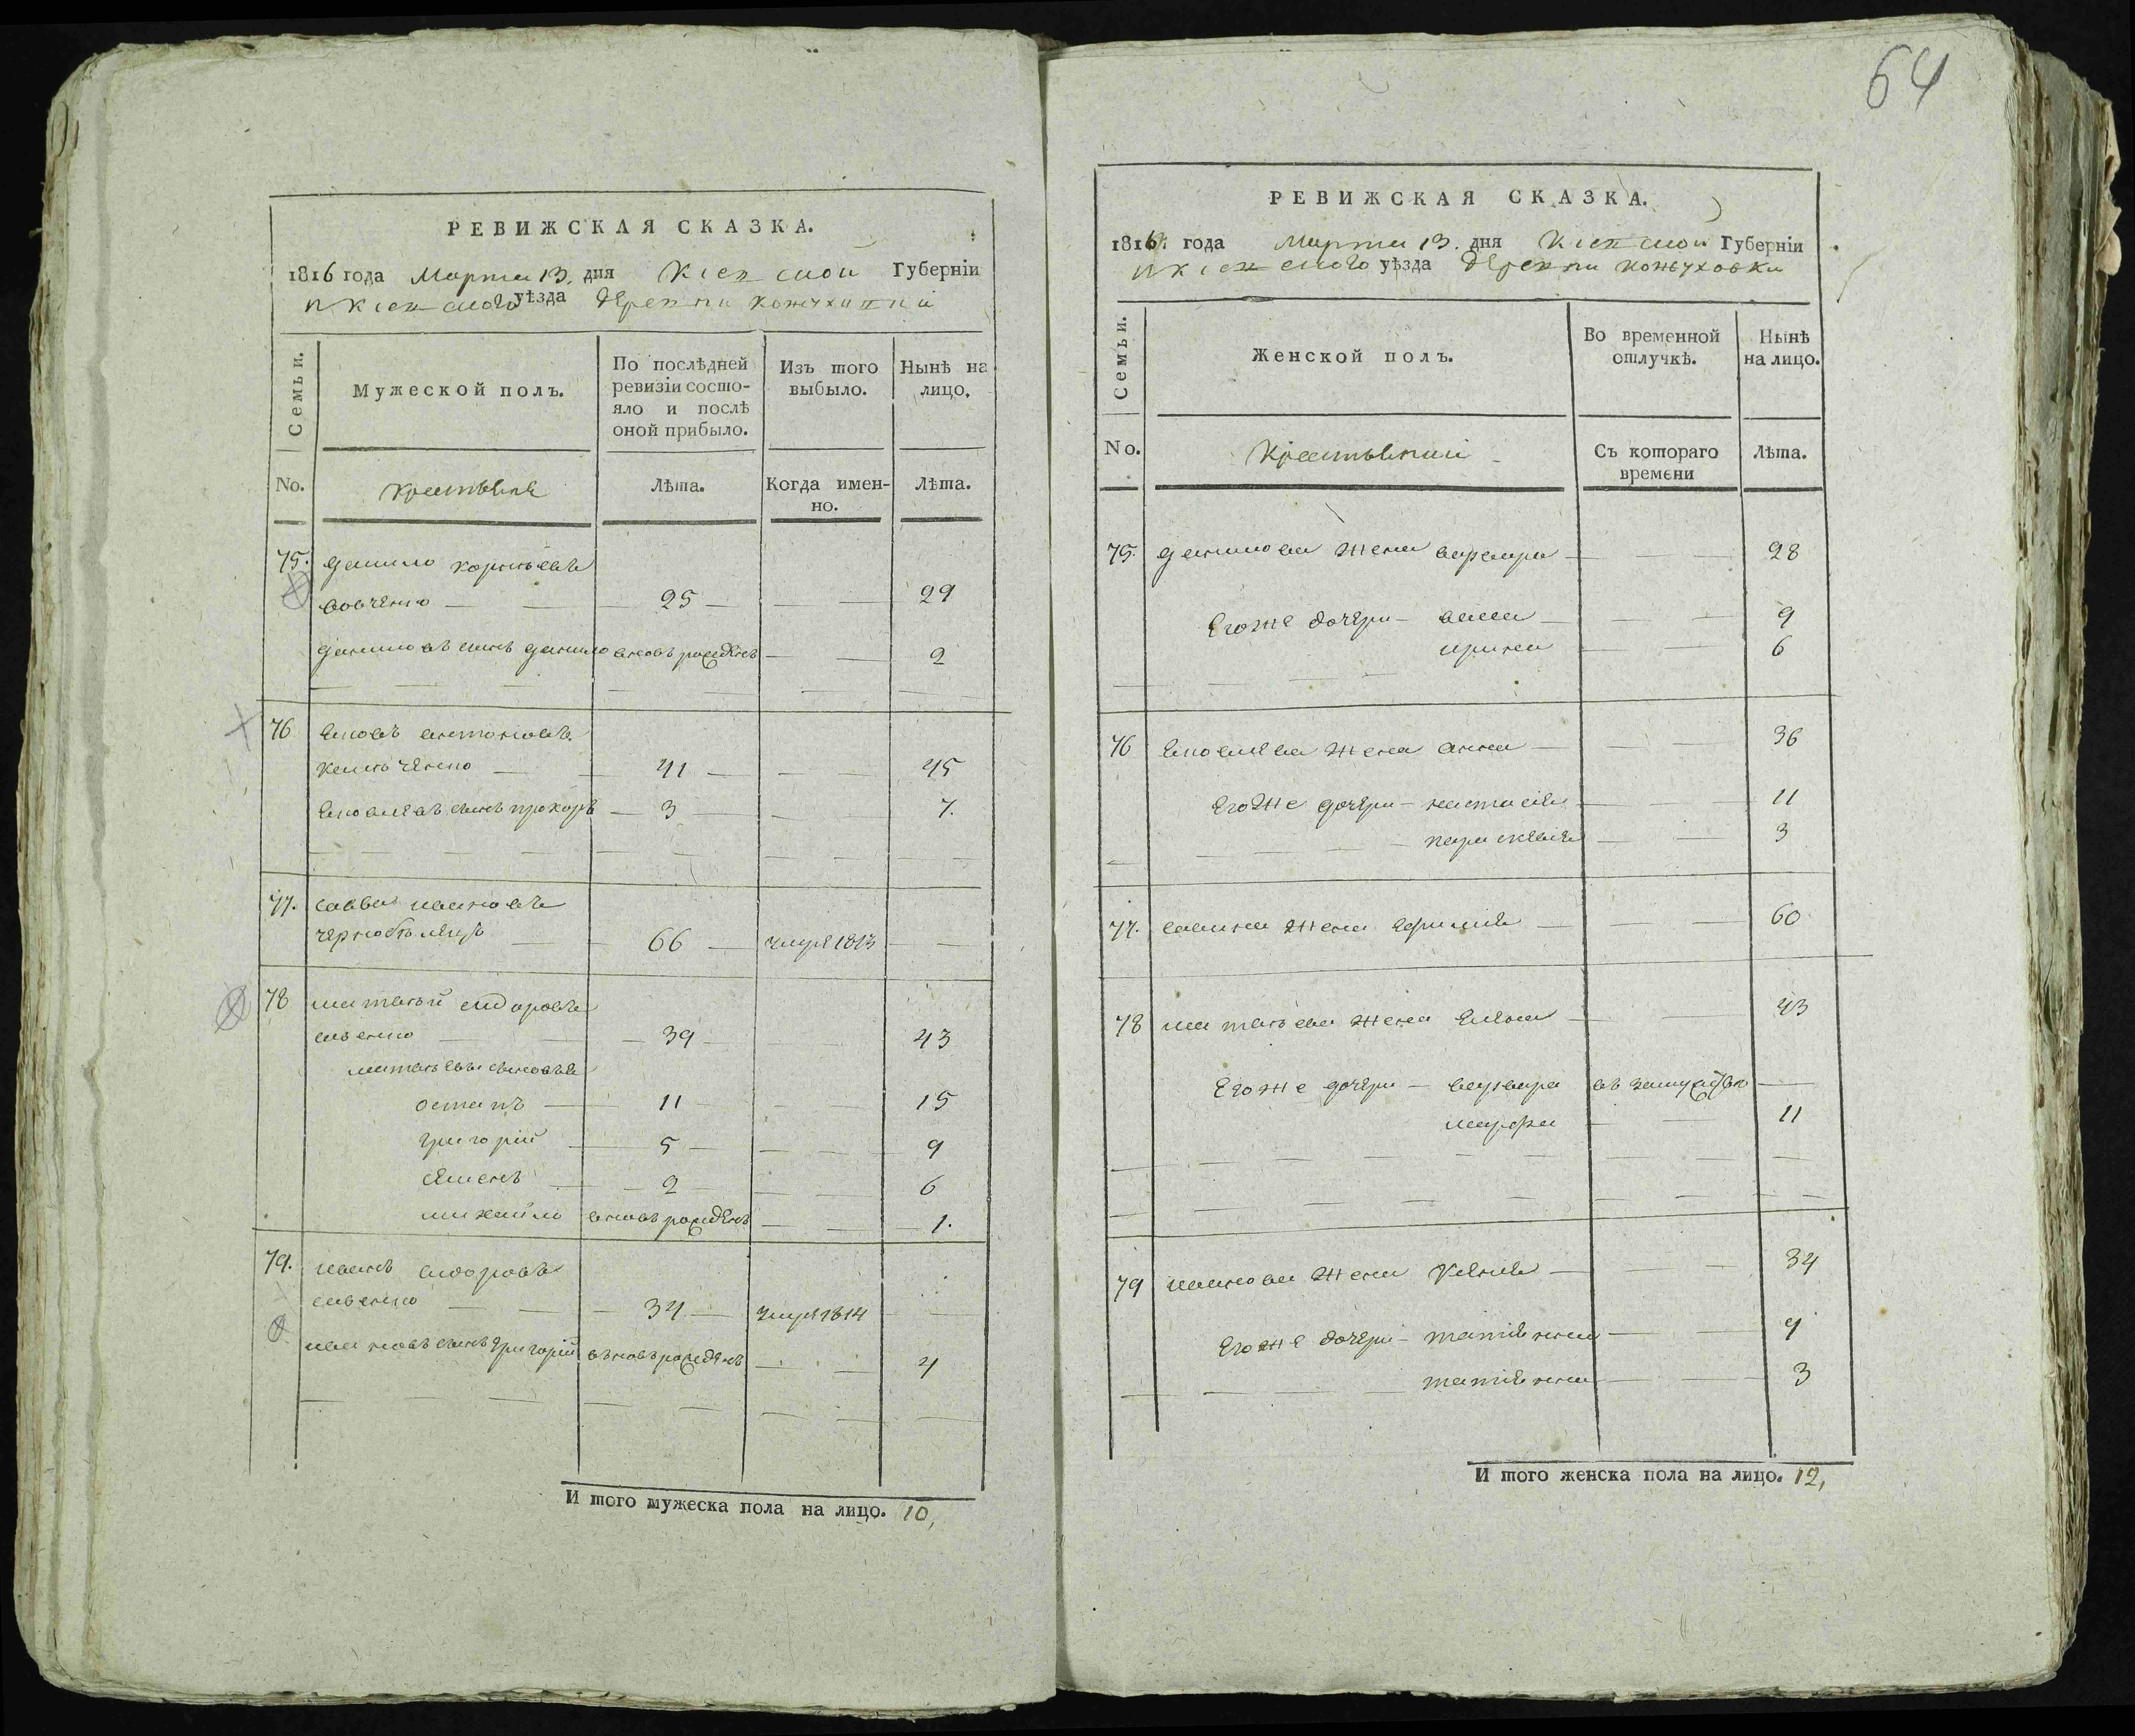 РЕВИЖСКАЯ СКАЗКА.
1816 года Марта 13. дня Киевской Губерніи
и Киевского уѣзда деревни
Семьи.
Мужеской полъ.
По послѣдней ревизіи состо-
яло и послѣ
оной прибыло.
Изъ того выбыло.
Нынѣ на лицо.
No.
крестьяне
Лѣта.
Когда имен-
но.
Лѣта.
75. данило корнѣевъ
вовченко — — 25 — — — 29
даниловъ сынъ данило вновь рожденъ — — 2
76 яковъ антоновъ
— — 41 — — — 45
яковлевъ сынъ прохоръ — 3 — — — 7.
77. савва ивановъ
чернобылецъ — — 66 — умре 1813 — —
78 матвѣй сидоровъ
— — 39 — — 43
матвѣевы сыновья
остапъ — 11 — — — 15
григорій — 5 — — — 9
семенъ — 2 — — — 6
михайло вновь рожденъ — — 1.
79. иванъ сидоровъ
— — 34 — умре 1814 — —
ивановъ сынъ григорій вновь рожденъ — — 4
И того мужеска пола на лицо. 10,
64
РЕВИЖСКАЯ СКАЗКА.
1816. года Марта 13. дня Киевской Губерніи
и Киевского уѣзда деревни кожуховки
Семьи.
Женской полъ.
Во временной
отлучкѣ.
Нынѣ
на лицо.
No.
Крестьянки
Съ котораго
времени
Лѣта.
75. данилова жена варвара — — — 28
Егоже дочери — васса — — — 9
ирина — — 6
76 яковлева жена анна — — — 36
Егоже дочери — настасія — — 11
параскевія — — 3
77. савина жена ефимія — — — 60
78 матвѣева жена елена — — 43
Егоже дочери — варвара въ замужствѣ —
марфа — — 11
79 иванова жена ксенія — — — 34
Егоже дочери — татіянна — — 9
татіянна — — 3
И того женска пола на лицо. 12,